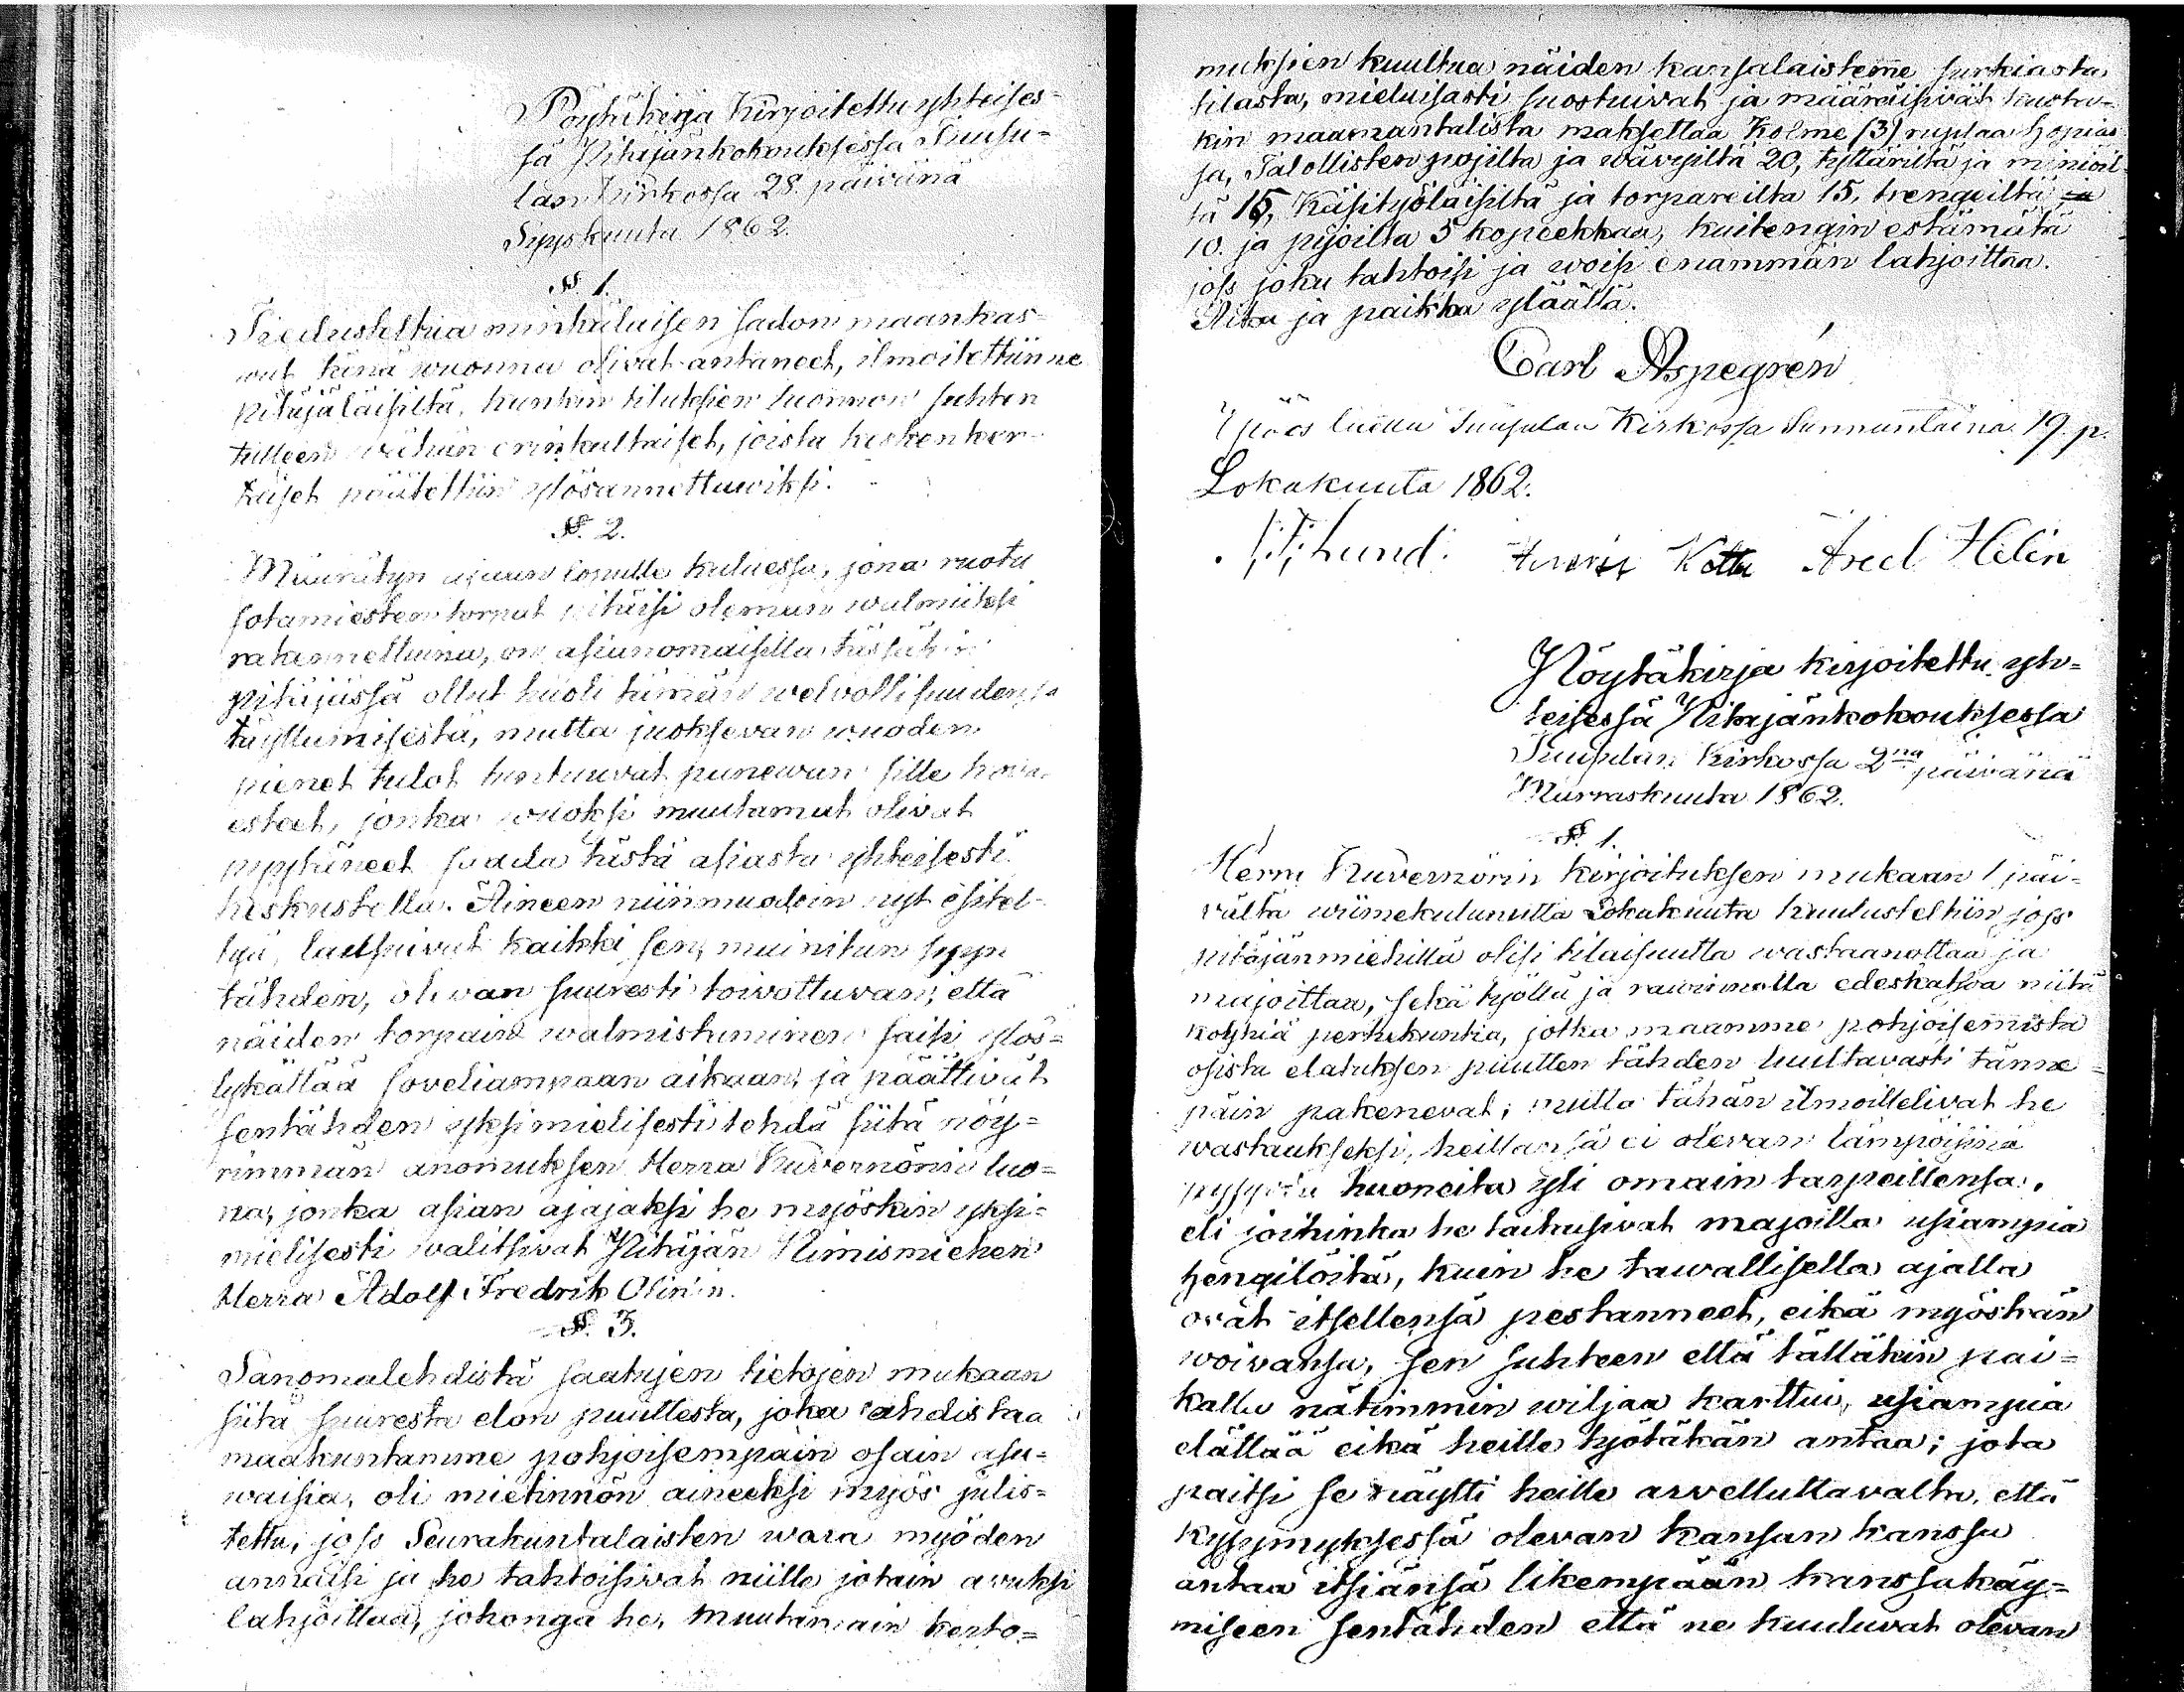 Pöytäkirja Kirjoitettu yhteises-
sä Pitäjänkokouksessa Tuusu-
lan Kirkossa 28. päivänä
Syyskuuta 1862.
§ 1.
Tiedusteltua minkälaisen sadon maankas-
wut tänä wuonna olivat antaneet, ilmoitettiin ne
pitäjäläisiltä, kunkin tiluksien luonnon suhten
tulleen wähän erinkaltaiset, joista keskenker-
täiset päätettiin ylösannettuwiksi.
§. 2.
Määrätyn ajaan lopulle kuluessa, jona ruotu
sotamiesten torpat pitäisi oleman walmiiksi
rakennettuina, on asianomaisilla tässäkin
pitäjässä ollut huoli tämän welvollisuudensa
täyttämisestä, mutta juoksevan wuoden
pienet tulot tuntuuvat panewan sille kovia
esteet, jonka wuoksi muutamat olivat
pyytäneet saada tästä asiasta yhteisesti
keskustella. Aineen niinmuodoin nyt esitel-
tyä, lausuivat kaikki sen, mainitun syyn
tähden, olevan suuresti toivottuvan, että
näiden torpain walmistuminen saisi ylös-
lykättää soveliampaan aikaan, ja päättivät
sentähden yksimielisesti tehdä siitä nöy-
rimmän anomuksen Herra Kuvernörin luo-
na, jonka asian ajajaksi he myöskin yksi-
mielisesti valitsivat Pitäjän Nimismiehen
Herra Adolf Fredrik Olin'in.
§. 3.
Sanomalehdistä saatujen tietojen mukaan
siitä suuresta elon puuttesta, joka ahdistaa
maakuntamme pohjoisempain osain asu-
waisia, oli mietinnön aineeksi myös julis-
tettu, joss Seurakuntalaisten wara myöden
annaisi ja he tahtoisivat niille jotain avuksi
lahjoittaa, johonga he, muutamain kerto-
muksien kuultua näiden kansalaistemme surkiasta
tilasta, mieluisasti suostuivat ja määräisivät kusta-
kin maamantalista maksettaa Kolme (3) ruplaa hopias
sa, Talollisten pojilta ja wävyiltä 20, tyttäriltä ja miniöil-
tä 15, Käsityöläisiltä ja torpareilta 15, trengeiltä
10. ja pijoilta 5 kopeekkaa, kuitengin estämätä
joss joku tahtoisi ja woisi enamman lahjoittaa.
Aika ja paikka ylläällä.
Carl Aspegrén
Ylös luettu Tuusulan Kirkossa Sunnuntaina 19. p.
Lokakuuta 1862.
Lund. Kotta Axel Helin
Pöytäkirja kirjoitettu yh-
teisessä Pitäjänkokouksessa
Tuusulan Kirkossa 2na päivänä
Marraskuuta 1862.
§. 1.
Herra Kuvernörin kirjoituksen mukaan 1 päi-
vältä wiimekulunutta Lokakuuta kuulusteltiin joss
pitäjänmiehillä olisi tilaisuutta wastaanottaa ja
majoittaa, sekä työllä ja rawinnolla edeskatsoa niitä
köyhiä perhekuntia, jotka maamme pohjoisemista
osista elatuksen puutten tähden luultavasti tänne-
päin pakenevat; mutta tähän ilmoittelivat he
wastaukseksi, heillänsä ei olevan lämpöisinä
pysyviä huoneita yli omain tarpeillensa,
eli joihinka he taitaisivat majoilla usiampia
hengilöitä, kuin he tawallisella ajalla
ovat itsellensä pestanneet, eikä myöskän
woivansa, sen suhteen että tälläkin pai-
kalla nätimmin wiljaa karttui, usiampia
elättää eikä heille työtäkän antaa; jota
paitsi se näytti heille arvelluttavalta, että
kysymyksessä olevan kansan kanssa
antaa itsiänsä likempään kanssakäy-
miseen sentähden että ne kuuluvat olevan